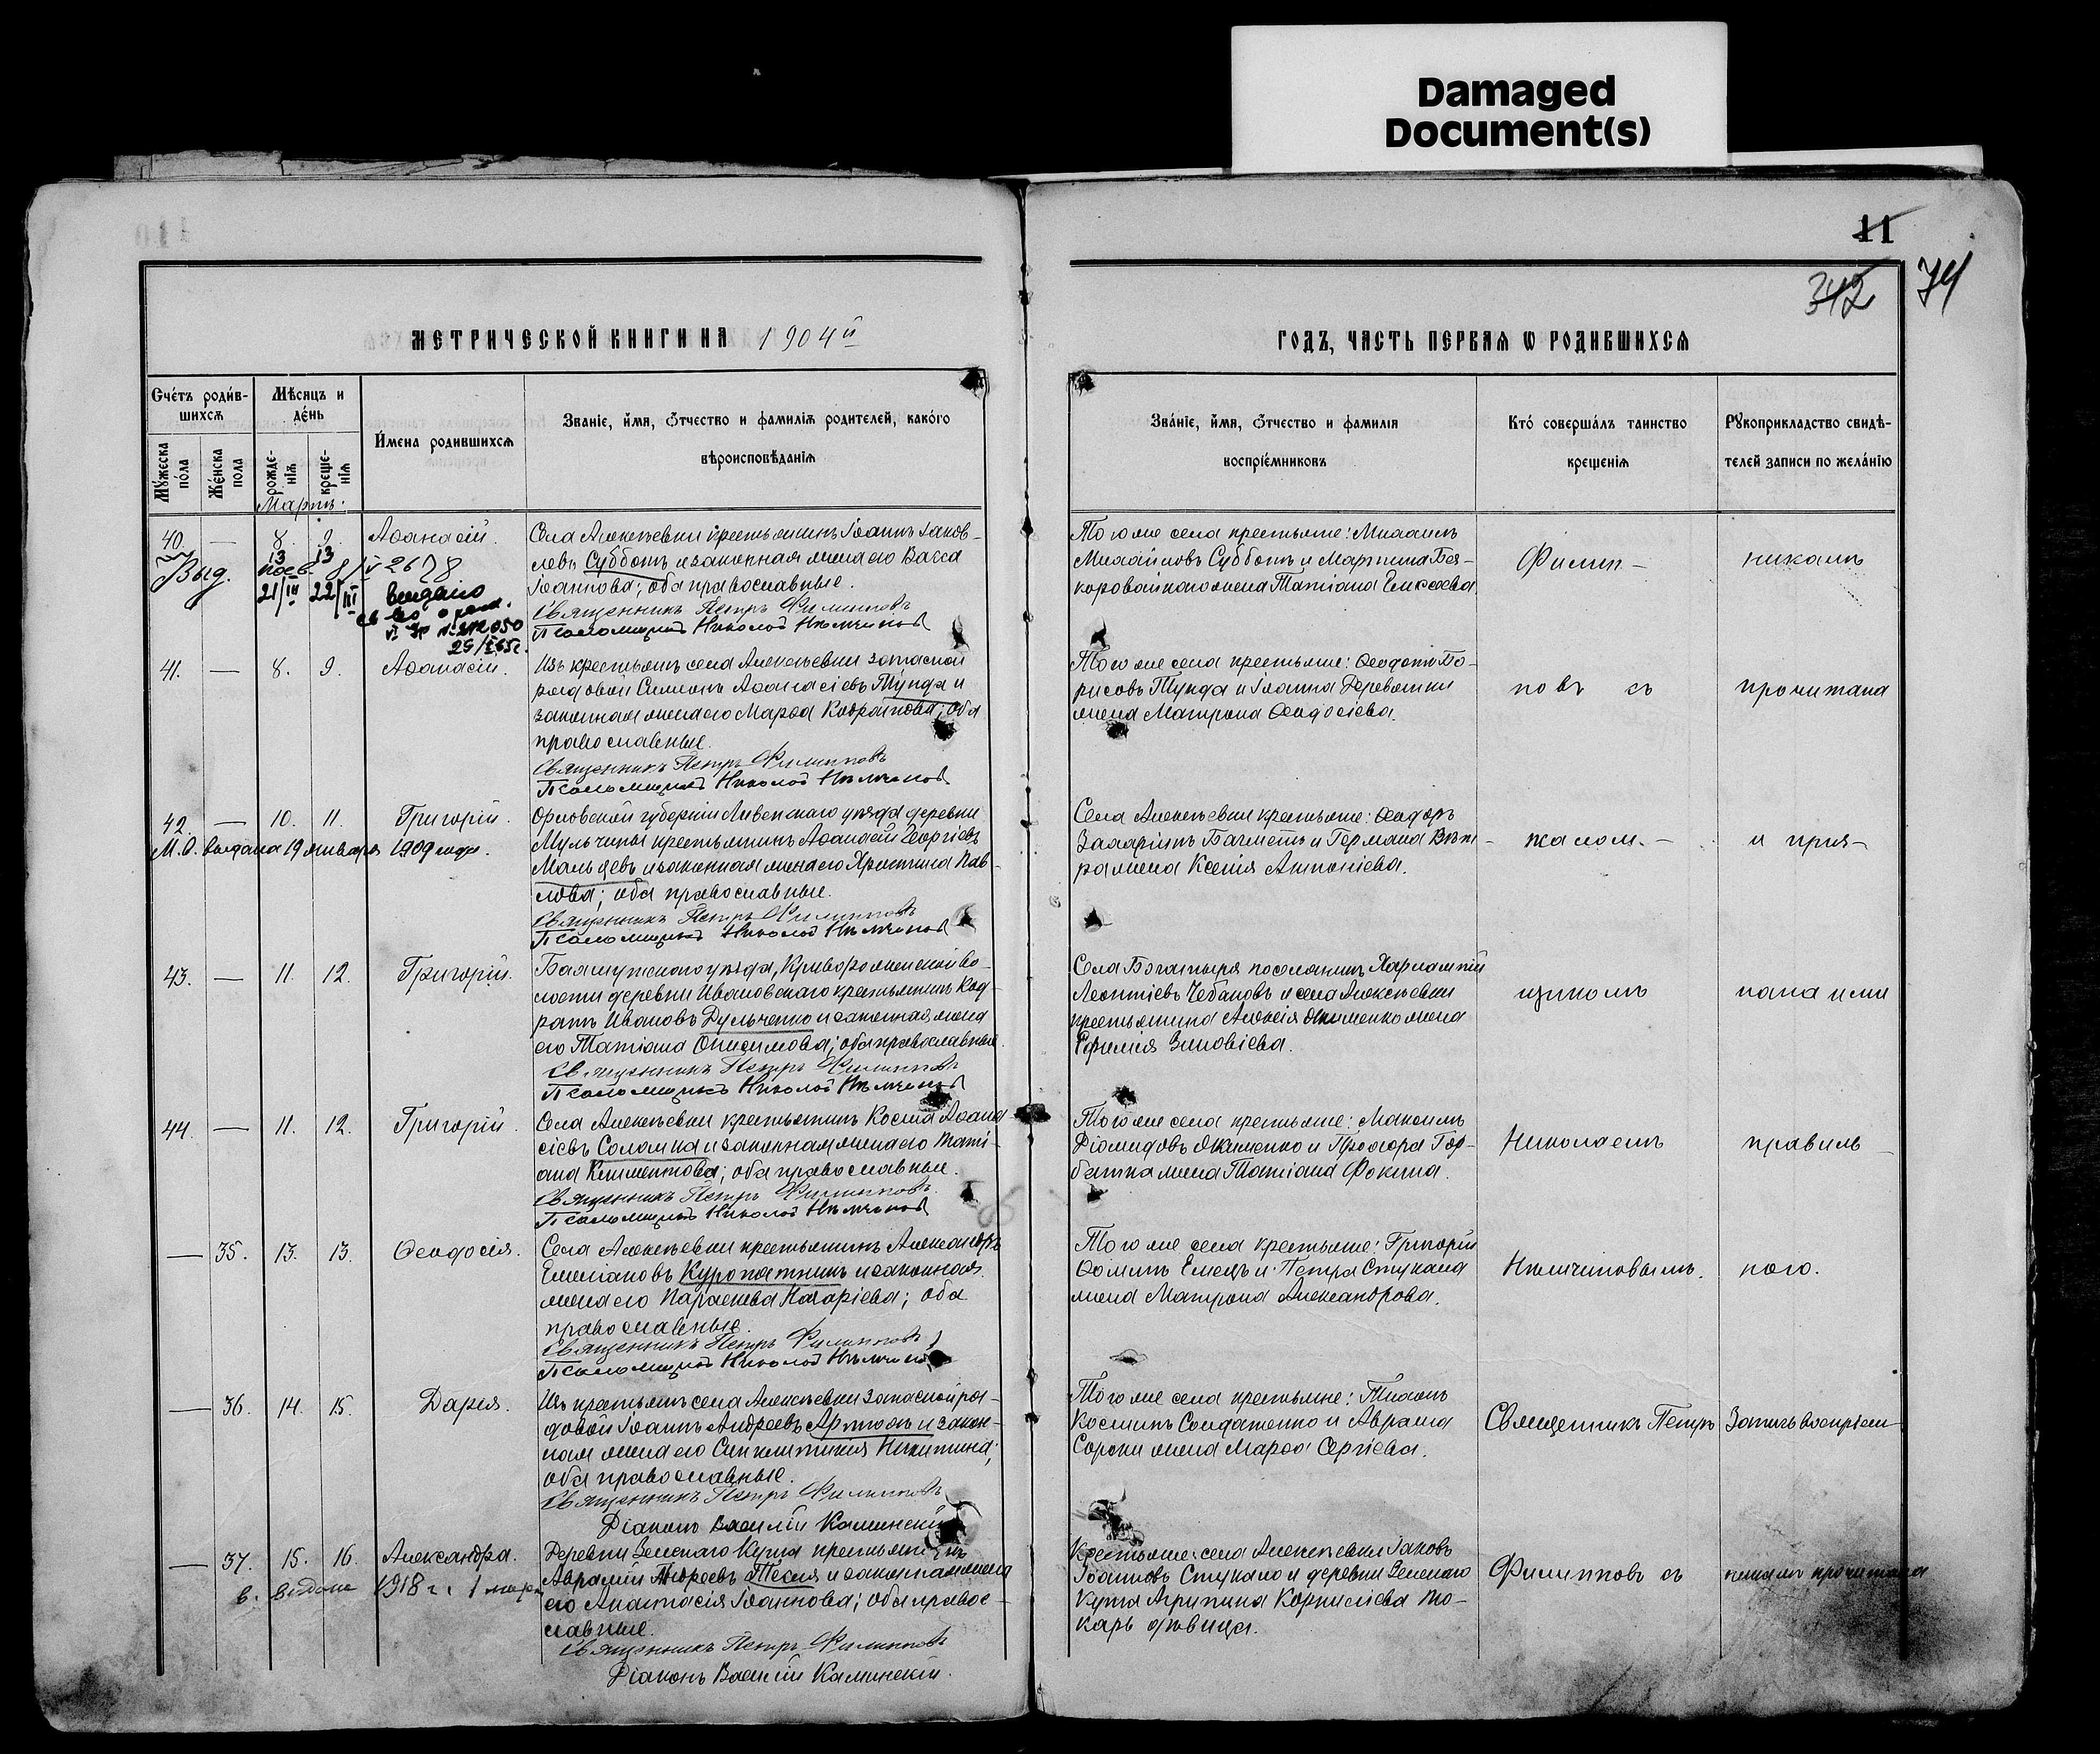 Damaged
Document(s)
11
342
74
МЕТРИЧЕСКОЙ КНИГИ НА 1904й
ГОДЪ, ЧАСТЬ ПЕРВАЯ Ѡ РОДИВШИХСѦ
Счéтъ родѝв-
шихсѧ
Мѣсяцъ и
дéнь
Ймена родившихсѧ
Званіе, ѝмя, ѻ́тчество и фамиліѧ родителей, какóго
вѣроисповѣданіѧ
Мýжеска
пóла
Жéнска
пола
рожде-
ніѧ
креще-
ніѧ
Мартъ.
Звáніе, ѝмя, ѻ́тчество и фамилія
воспріéмниковъ
Ктó совершáлъ таинство
крещеніѧ
Рꙋкоприкладство свидѣ-
телей записи по желáнію
40. — 8. 9. Аѳанасій.
Села Алексѣевки крестьянинъ Іоаннъ Іаков-
левъ Субботъ и законная жена его Васса
Іоаннова; оба православные.
Священникъ Петръ Филипповъ
Псаломщикъ Николай Нѣмчинов
Выд.
13 13
21/III 22/III
выдано
Того же села крестьяне: Михаилъ
Михайловъ Субботъ и Мартина Бѣя-
коровайнаго жена Татіана Елисеева.
Филип-
никамъ
41. — 8. 9. Аѳанасій.
Изъ крестьянъ села Алексѣевки запасной
рядовой Симеонъ Аѳанасіевъ Тунда и
законная жена его Марѳа Кодратова; оба
православные.
Священникъ Петръ Филипповъ
Псаломщикъ Николай Нѣмчинов
Того же села крестьяне: Ѳеодотъ Бо-
рисовъ Тунда и Іоанна Деревянки
жена Матрона Ѳеодосіева.
повъ съ
прочитана
42. — 10. 11. Григорій.
М. О. выдана 19 января 1909 года.
Орловской губерніи Ливенскаго уѣзда деревни
Мульчины крестьянинъ Аѳанасій Георгіевъ
Мальцевъ и законная жена его Христина Пав-
лова; оба православные.
Священникъ Петръ Филипповъ
Псаломщикъ Николай Нѣмчинов
Села Алексѣевки крестьяне: Ѳеодоръ
Захаріинъ Багметъ и Германа Вѣт-
ра жена Ксенія Антоніева.
псалом.-
и приз-
43. — 11. 12. Григорій.
Бахмутскаго уѣзда, Криворожской во-
лости деревни Ивановскаго крестьянинъ Код-
ратъ Ивановъ Дульченко и законная жена
его Татіана Онисимова; оба православные.
Священникъ Петръ Филипповъ
Псаломщикъ Николай Нѣмчинов
Села Богатыря поселянинъ Харлампій
Леонтіевъ Чебановъ и села Алексѣевки
крестьянина Алексія Якименко жена
Ефимія Зиновіева.
щикомъ
44. — 11. 12. Григорій.
Села Алексѣевки крестьянинъ Косма Аѳана-
сіевъ Соломка и законная жена его Тати-
ана Климентова; оба православные.
Священникъ Петръ Филипповъ
Псаломщикъ Николай Нѣмчинов
Того же села крестьяне: Максимъ
Діомидовъ Якименко и Прохора Гор-
батка жена Татіана Фокина.
Николаемъ
правиль-
— 35. 13. 13. Ѳеодосія.
Села Алексѣевки крестьянинъ Александръ
Емеліановъ Куропатникъ и законная
жена его Параскева Назаріева; оба
православные.
Священникъ Петръ Филипповъ
Псаломщикъ Николай Нѣмчинов
Того же села крестьяне: Григорій
Ѳоминъ Емецъ и Петра Стукала
жена Матрона Александрова.
Нѣмчиновымъ.
ною.
— 36. 14. 15. Дарія.
Изъ крестьянъ села Алексѣевки запасной ря-
довой Іоаннъ Андреевъ Артюхъ и закон-
ная жена его Синклитикія Никитина;
оба православные.
Священникъ Петръ Филипповъ
Діаконъ Василій Каминскій
Того же села крестьяне: Тихонъ
Косминъ Солдатенко и Авраама
Сороки жена Марѳа Сергіева.
Священникъ Петръ
Запись воспріем-
— 37. 15. 16. Александра.
в. видана 1918 г. 1 марта
Деревни Зеленаго Кута крестьянинъ
Авраамій Андреевъ Тесля и законная жена
его Анастасія Іоаннова; оба право-
славные.
Священникъ Петръ Филипповъ
Діаконъ Василій Каминскій.
Крестьяне: села Алексѣевки Іаковъ
Іоанновъ Стукало и деревни Зеленаго
Кута Агрипина Корниліева То-
карь дѣвица.
Филипповъ съ
никамъ прочитана